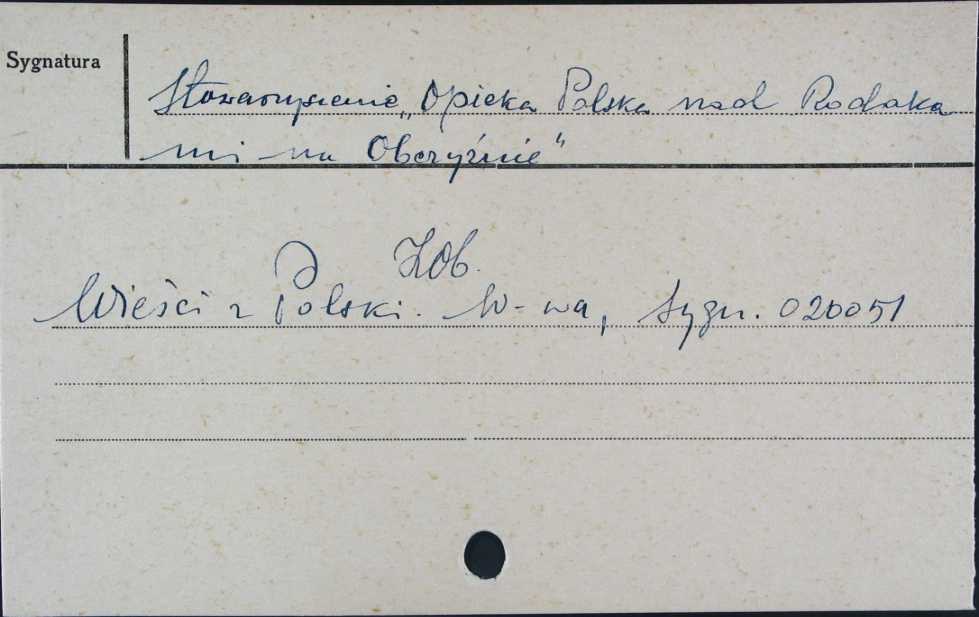 Sygnatura
Stowarzyszenie „Opieka Polska nad Rodaka
mi na Obczyźnie"
Zob.
Wieści z Polski. W-wa, sygn. 020051